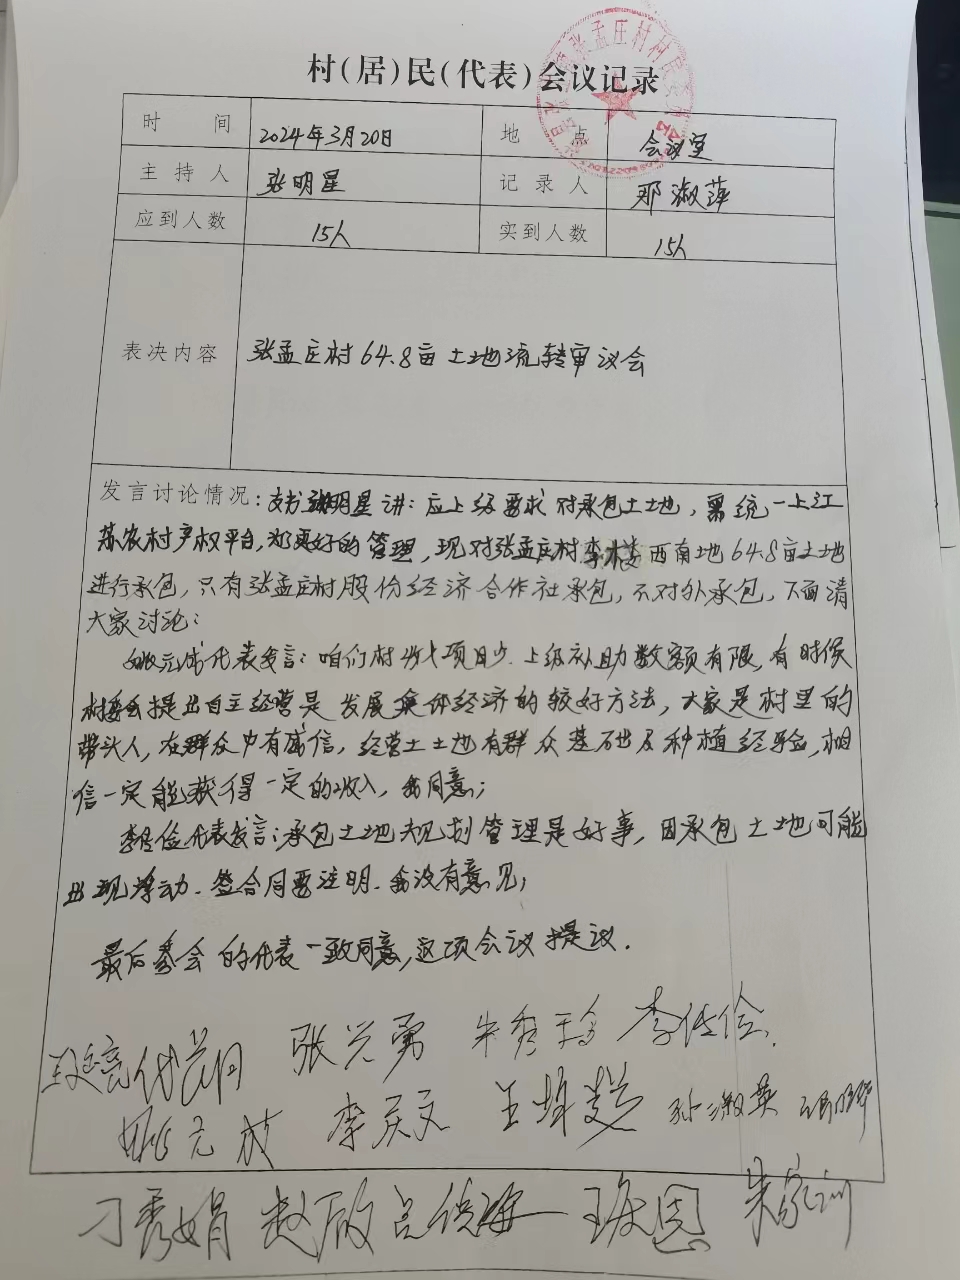 张孟庄村村民
村(居)民(代表)会议记录
时 间 2024年3月20日 地 点 会议室
主持人 张明星 记录人 邓淑萍
应到人数 15人 实到人数 15人
表决内容 张孟庄村64.8亩土地流转审议会
发言讨论情况:支书张明星讲:应上级要求对承包土土地,需统一上江
苏农村产权平台,为更好的管理,现对张孟庄村李楼西南地64.8亩土地
进行承包,只有张孟庄村股份经济合作社承包,不对外承包,下面请
大家讨论:
姚元成代表发言:咱们村收入项目少.上级补助数额有限,有时候
村委会提出自主经营是发展集体经济的较好方法,大家是村里的
带头人,在群众中有威信,经营土土地有群众基础及种植经验,相
信一定能获得一定的收入,我同意;
李传俭代表发言:承包土地规划管理是好事,因承包土地可能
出现浮动.签合同要注明.我没有意见;
最后参会的代表一致同意,这项会议提议.
张兴勇 李传俭
姚元 李庆文 王 孙淑英
刁秀娟 赵 朱家训